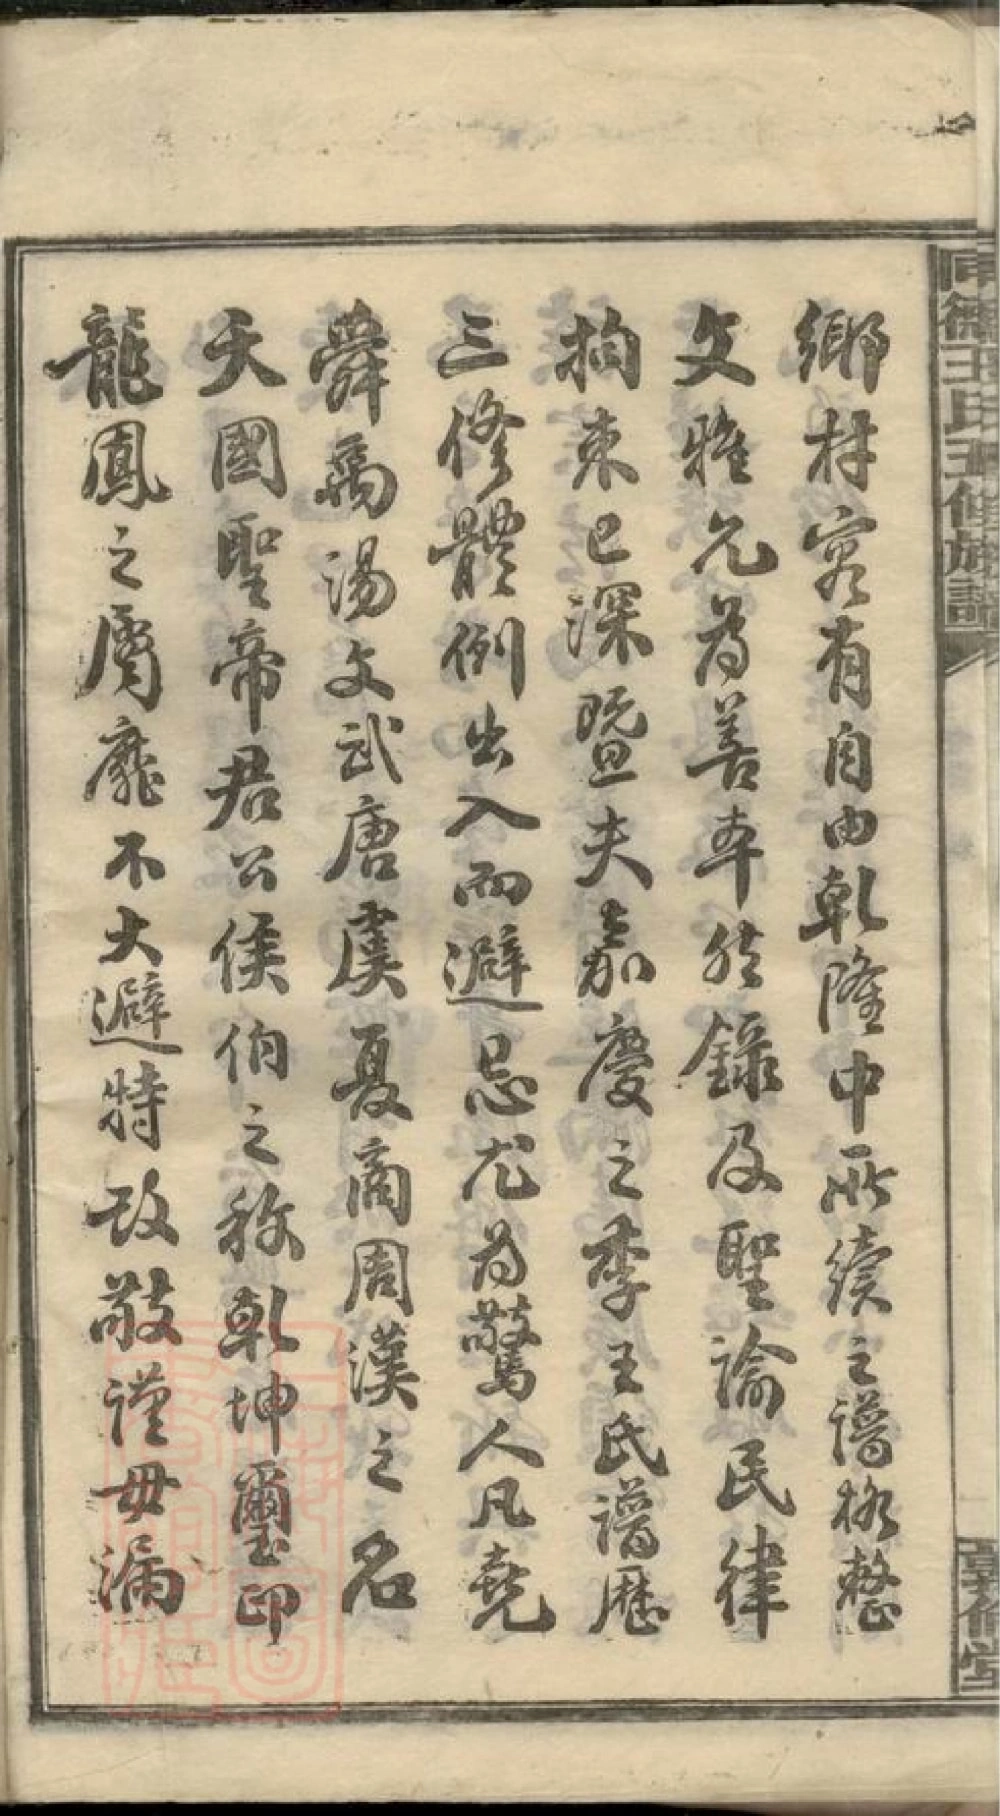 鄉村容有自由乾隆中所續之譜格整
文雅允為善本然錄及聖諭民律
拘束已深暨夫嘉慶之季王氏譜歷
三修體例出入而避忌尤為驚人凡堯
舜禹湯文武唐虞夏商周漢之名
天國聖帝君公侯伯之称乾坤璽印
龍鳳之屬靡不大避特改敬謹毋漏
王氏五修族譜